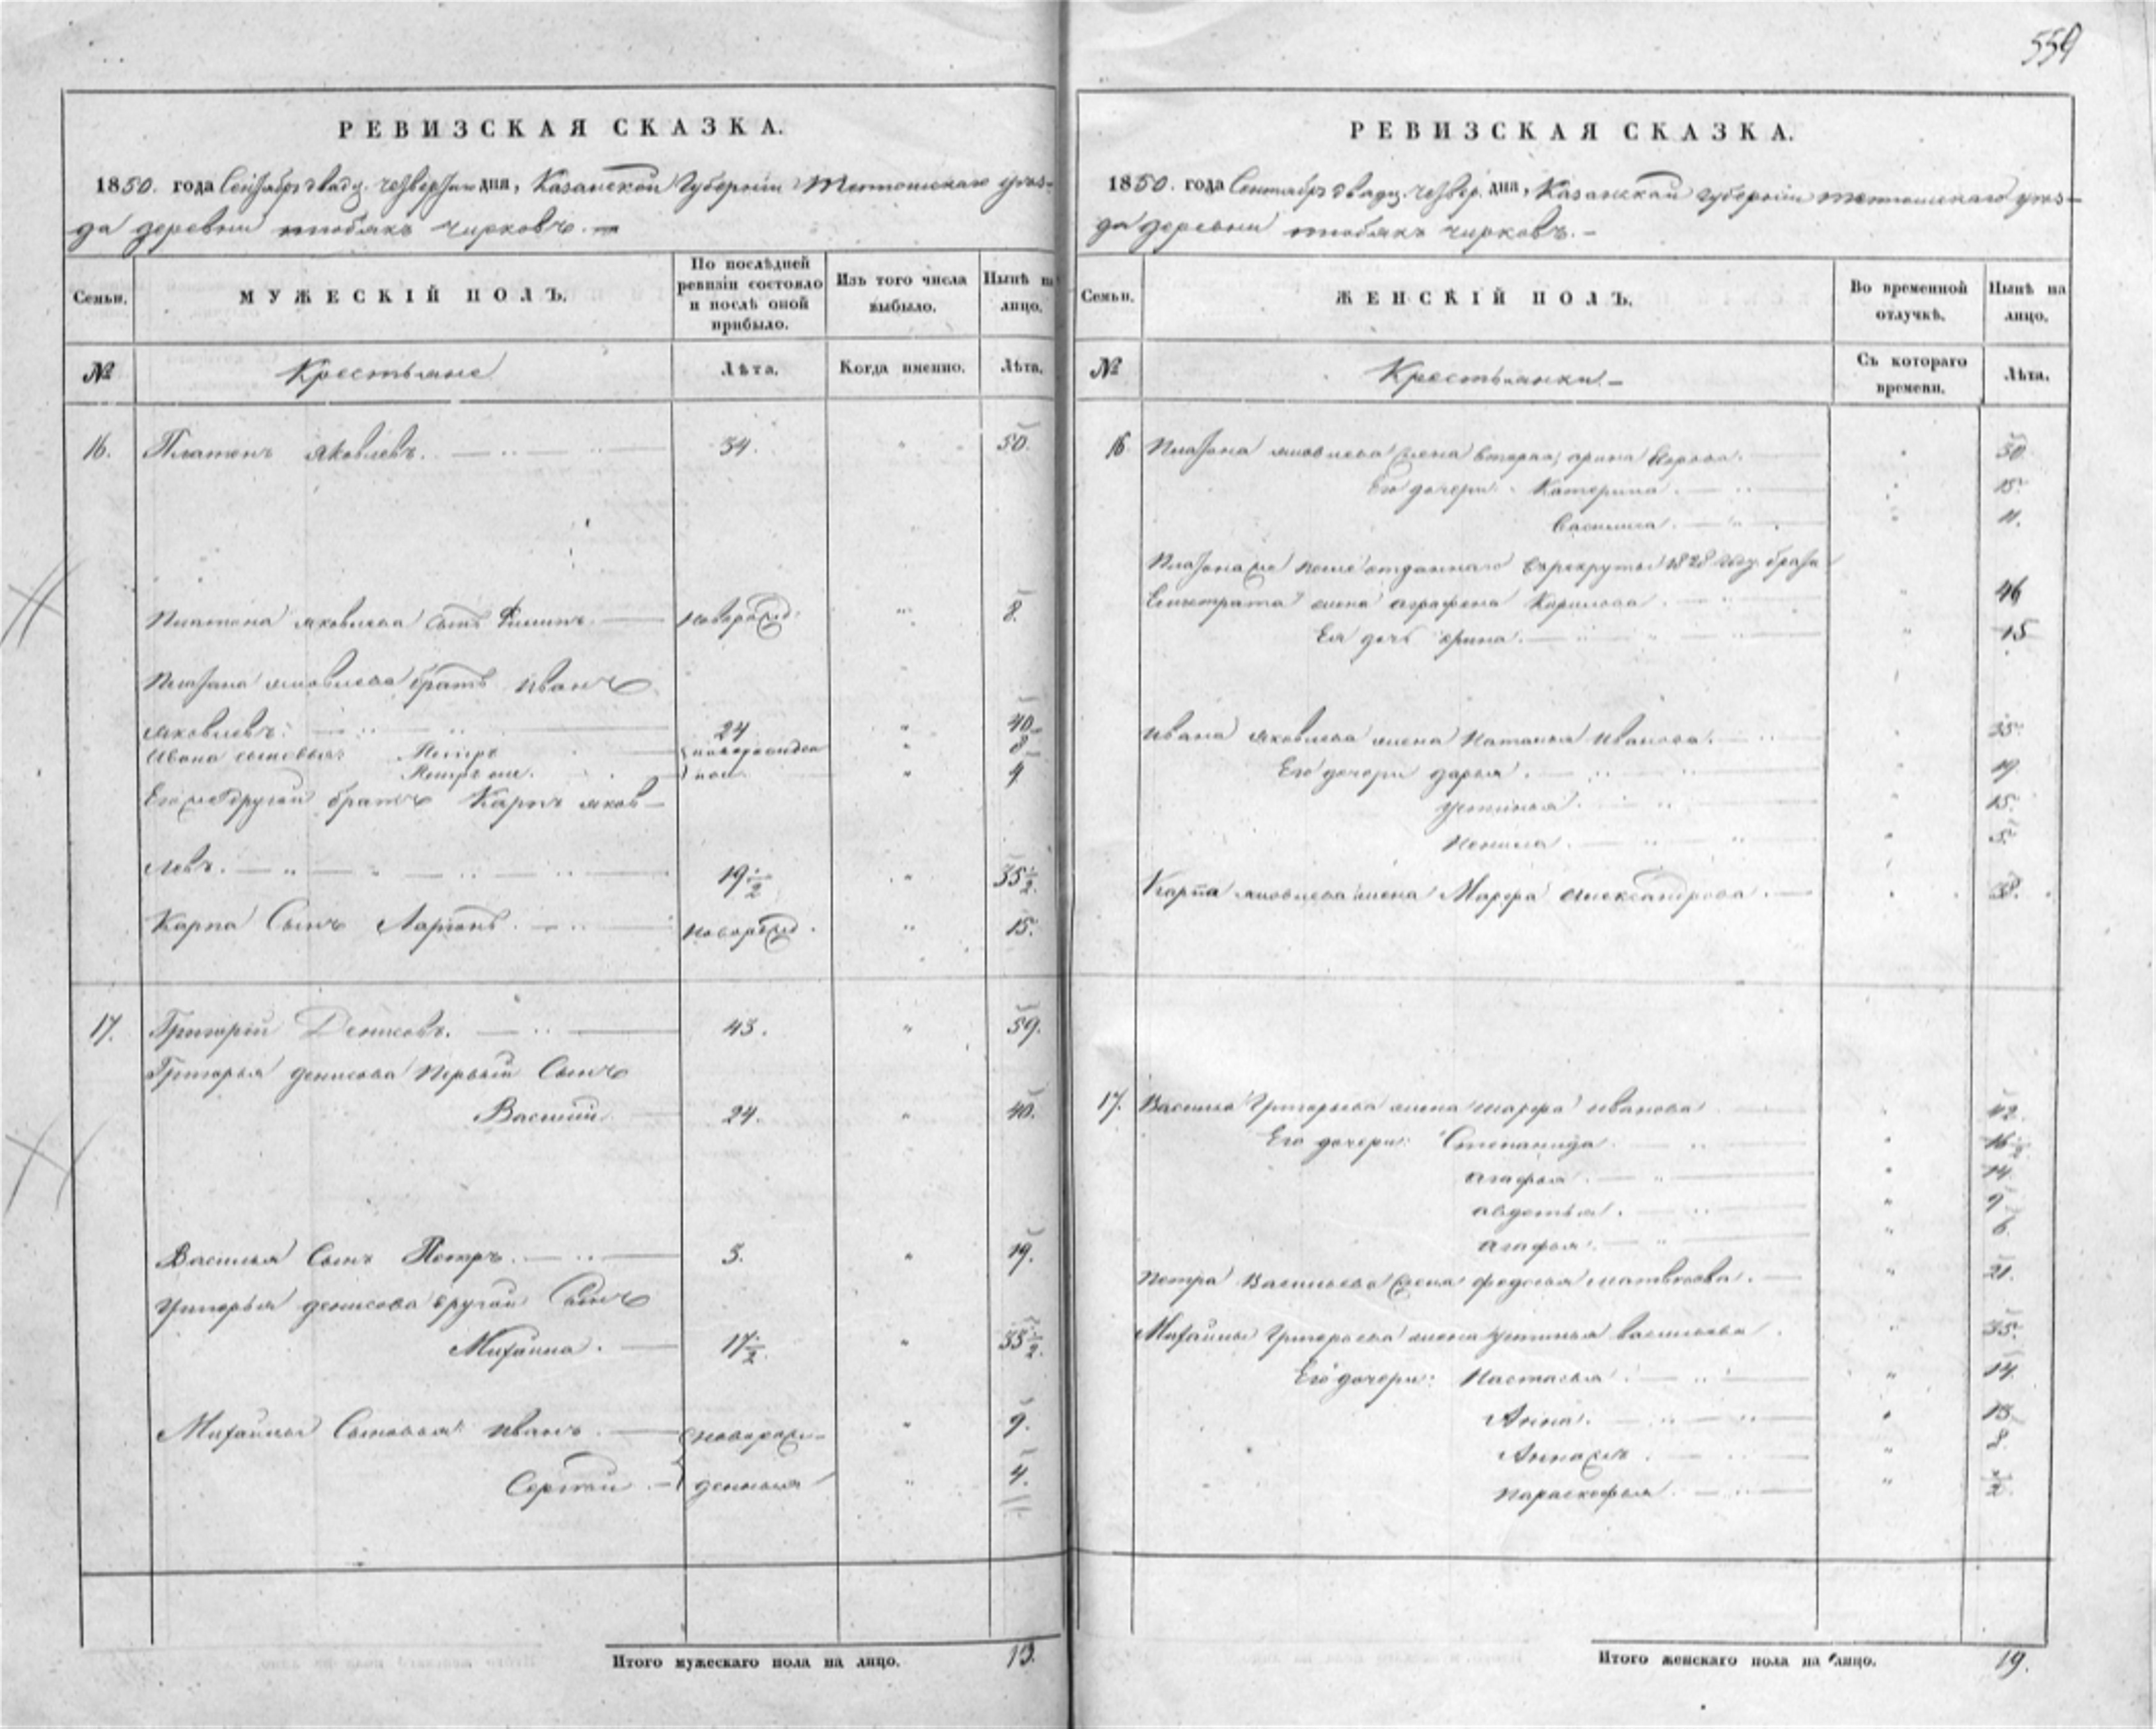 559
РЕВИЗСКАЯ СКАЗКА.
1850. года Сентября двадц. четвертаго дня, Казанской Губерніи Тетюшскаго уѣз-
да деревни тюбякъ чирковъ.
Семьи.
МУЖЕСКІЙ ПОЛЪ.
По послѣдней ревизіи состояло и послѣ оной прибыло.
Изъ того числа выбыло.
Нынѣ на лицо.
№
Крестьяне
Лѣта.
Когда именно.
Лѣта.
16. Платонъ яковлевъ. 34. " 50.
Платона яковлева сынъ Филипъ. новорожд. " 8.
Платона яковлева братъ иванъ
яковлевъ. 24 " 40
ивана сыновья: Петръ новорожден " 8
Петръ же. ные " 4
Его же другой братъ Карпъ яков-
левъ. 19 1/2 " 35 1/2.
Карпа Сынъ Ларионъ. новорожд. " 15.
17. Григорій Денисовъ. 43. " 59.
Григорья денисова первый Сынъ
Василий 24. " 40.
Василья Сынъ Петръ. 3. " 19.
Григорья денисова другой Сынъ
Михаила. 17 1/2. " 33 1/2.
Михайлы Сыновья: иванъ новорож- " 9.
Сергѣй. денныя " 4.
Итого мужескаго пола на лицо. 13.
РЕВИЗСКАЯ СКАЗКА.
1850. года Сентября двадц. четвер. дня, Казанской губерніи тетюшскаго уѣз-
да деревни тюбякъ чирковъ.
Семьи.
ЖЕНСКІЙ ПОЛЪ.
Во временной отлучкѣ.
Нынѣ на лицо.
№
Крестьянки.
Съ котораго времени.
Лѣта.
16 Платона яковлева жена вторая, арина " 30
Его дочери: Катерина. " 15.
Василиса. " 11.
Платона же после отданнаго въ рекруты 1828 году брата
жена аграфена Карпова. " 46
Ея дочь арина. " 15
ивана яковлева жена Наталья иванова. " 35.
Его дочери дарья. " 19
устинья. " 15.
Ненила. " 5.
Карпа яковлева жена Марфа александрова. " 38.
17. Василья Григорьева жена марфа иванова " 42.
Его дочери: Степанида. " 16 1/2
агафья. " 14.
авдотья. " 9
агафья. " 6.
петра Васильева жена федосья матвѣева. " 21.
Михайлы Григорьева жена устинья васильева. " 35.
Его дочери: Настасья. " 14.
Анна. " 13
Анна жъ. " 8.
параскофья. " 1/2.
Итого женскаго пола на лицо. 19.